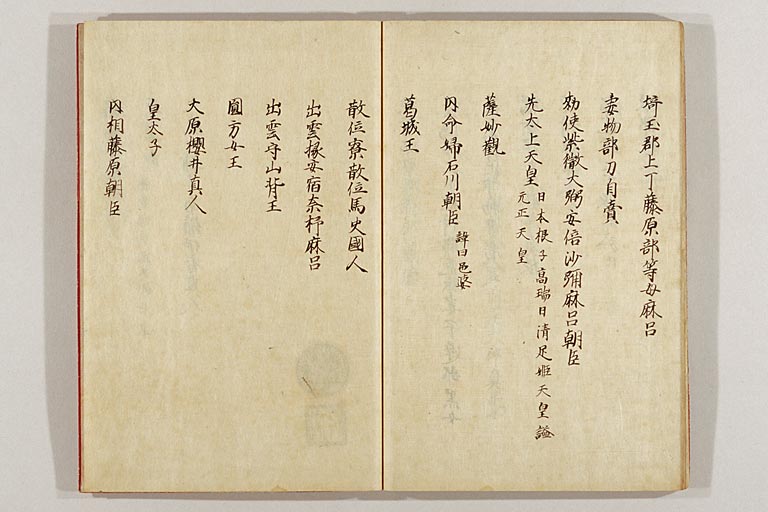 埼玉郡上丁藤原部等母麻呂
妻物部刀自賣
勅使紫微大弼安倍沙彌麻呂朝臣
先太上天皇 日本根子高瑞日清足姫天皇謚
元正天皇
薩妙觀
内命婦石川朝臣 諱曰邑婆
葛城王
散位寮散位馬史國人
出雲掾安宿奈杼麻呂
出雲守山背王
圓方女王
大原櫻井真人
皇太子
内相藤原朝臣